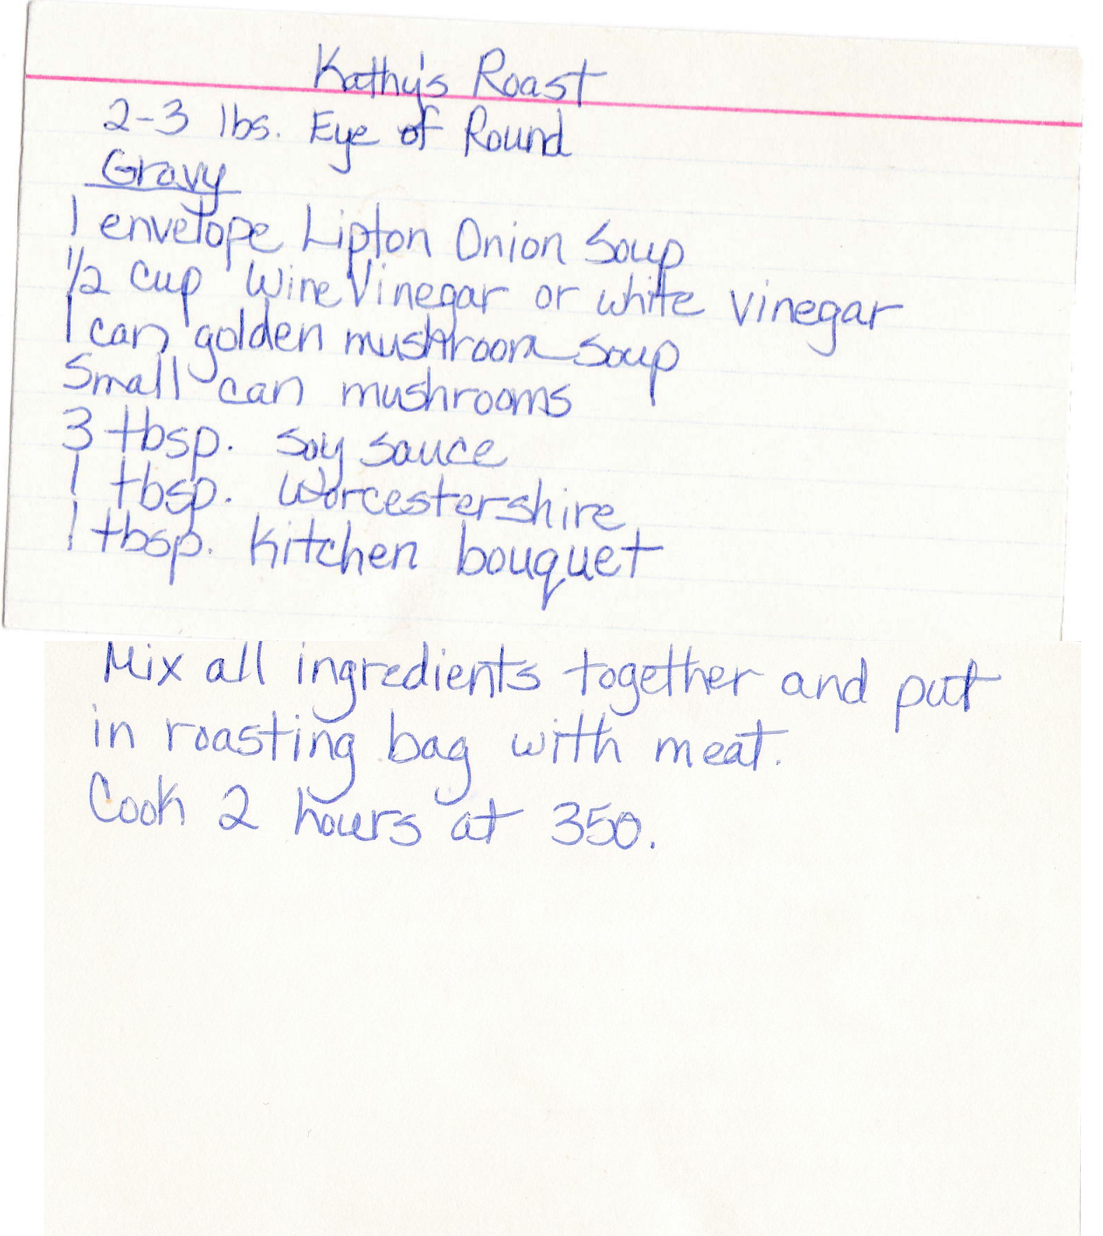 Kathy's Roast
2-3 lbs. Eye of Round
Gravy
1 envelope Lipton Onion Soup
1/2 cup Wine Vinegar or white vinegar
1 can golden mushroom soup
Small can mushrooms
3 tbsp. soy sauce
1 tbsp. Worcestershire
1 tbsp. kitchen bouquet
Mix all ingredients together and put
in roasting bag with meat.
Cook 2 hours at 350.